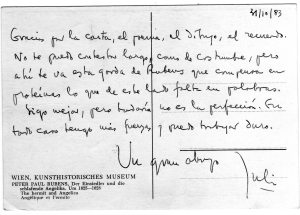 21/10/83
Gracias por la carta, el poema, el dibujo, el recuerdo.
No te puedo contestar largo, como de costumbre, pero
ahí te va esta gorda de Rubens que compensa en
proteínas lo que de este lado falta en palabras.
Sigo mejor, pero todavía no es la perfección. En
todo caso tengo más fuerzas y puedo trabajar duro.
Un gran abrazo
Julio
WIEN, KUNSTHISTORISCHES MUSEUM
PETER PAUL RUBENS, Der Einsiedler und die
schlafende Angelika. Um 1625–1628
The hermit and Angelica
Angélique et l'ermite